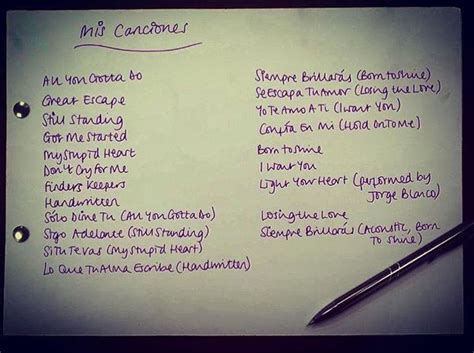 Mis Canciones
All You Gotta Do
Great Escape
Still Standing
Got Me Started
My Stupid Heart
Don't Cry For Me
Finders Keepers
Handwritten
Sólo Dime Tu (All You Gotta Do)
Sigo Adelante (Still Standing)
Si Tu Te Vas (My Stupid Heart)
Lo Que Tu Alma Escribe (Handwritten)
Siempre Brillarás (Born to Shine)
Se Escapa Tu Amor (Losing the Love)
Yo Te Amo A Ti (I Want You)
Confía En Mi (Hold On To Me)
Born to Shine
I Want You
Light Your Heart (performed by
Jorge Blanco)
Losing the Love
Siempre Brillarás (Acoustic, Born
To Shine)